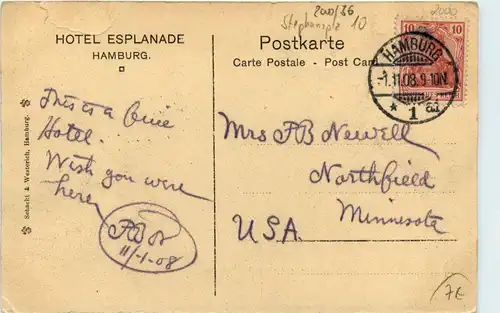 HOTEL ESPLANADE
HAMBURG.
200/36
Stephansplz 10
2000
Postkarte
Carte Postale - Post Card
10 10
HAMBURG
-1.11.08.9-10N.
* 1
This is a fine
Hotel.
Wish you were
here
FBN
11/-1-08
Mrs FB Newell
Northfield
Minnesota
U.S.A.
Schacht & Westerich, Hamburg.
7€